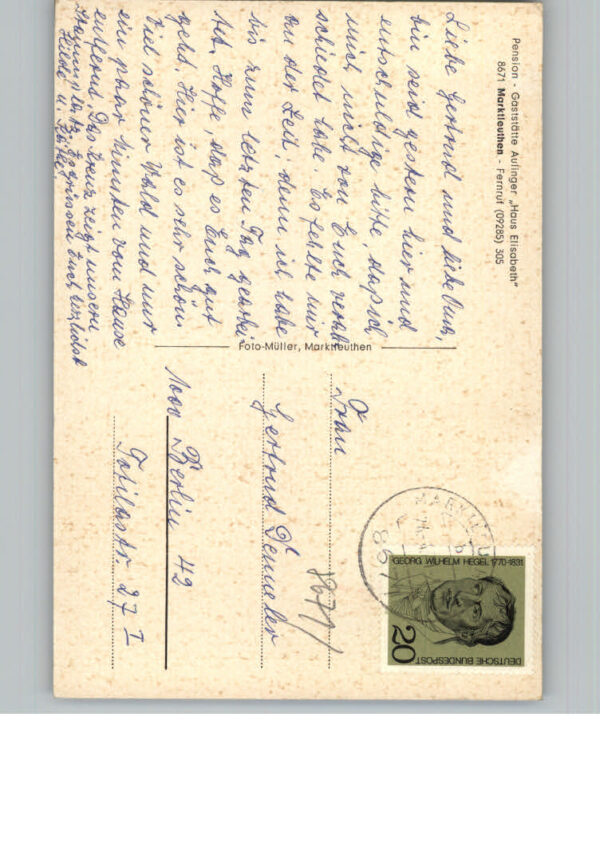 Pension - Gaststätte Aulinger „Haus Elisabeth"
8671 Marktleuthen - Fernruf (09285) 305
Liebe Gertrud und liebe Omi,
bin seid gestern hier und
entschuldige bitte, dass ich
mich nicht von Euch verab-
schiedet habe. Es fehlte mir
an der Zeit, denn ich habe
bis zum letzten Tag gearbei-
tet. Hoffe, dass es Euch gut
geht. Hier ist es sehr schön.
Viel schöner Wald und nur
ein phar Minuten vom Hause
entfernt. Das Kreuz zeigt unseren
Stammplatz. Es grüssen Euch herzlichst
Foto-Müller, Marktleuthen
Frau
Gertrud
1000 Berlin 42
27 I
8671/
MARKTLEU
867
GEORG WILHELM HEGEL 1770-1831
20
DEUTSCHE BUNDESPOST